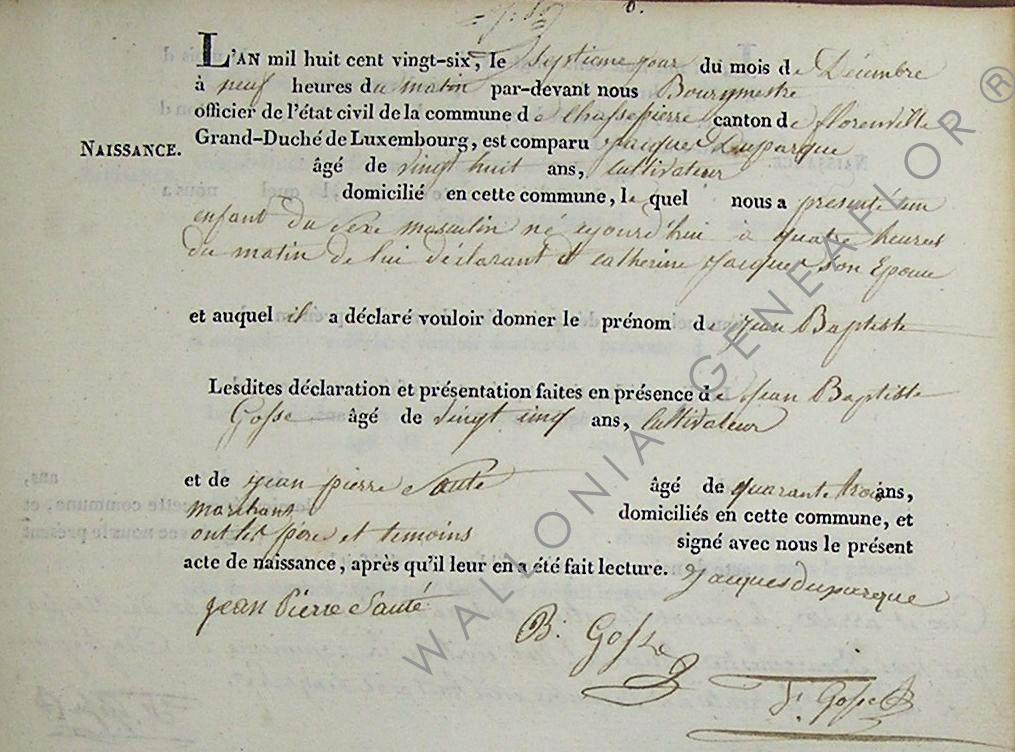 6.
L'AN mil huit cent vingt-six, le Septieme jour du mois de Decembre
à neuf heures du matin par-devant nous Bourgmestre
officier de l'état civil de la commune de Chassepierre canton de florenville
Grand-Duché de Luxembourg, est comparu jacques Duparque
NAISSANCE.
âgé de vingt huit ans, Cultivateur
domicilié en cette commune, le quel nous a présenté un
enfant du sexe masculin né ajourd'hui à quatre heures
du matin de lui déclarant et catherine jacques son Epouse
et auquel il a déclaré vouloir donner le prénom de jean Baptiste
Lesdites déclaration et présentation faites en présence de jean Baptiste
Gosse âgé de vingt cinq ans, Cultivateur
et de jean pierre Sauté âgé de quarante trois ans,
marchans domiciliés en cette commune, et
ont les père et temoins signé avec nous le présent
acte de naissance, après qu'il leur en a été fait lecture. jacques duparque
jean Pierre Sauté
B. Gosse
J. Gosse
WALLONIA GENEAFLOR ®